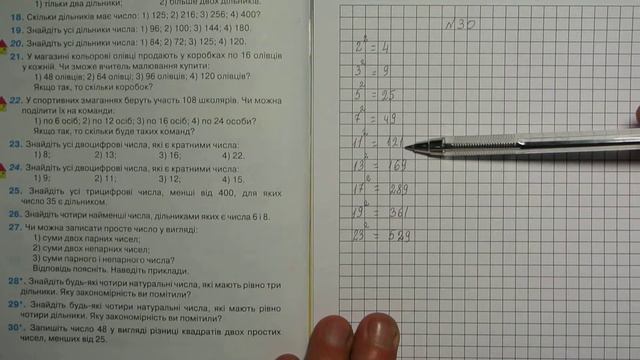 1) тільки два дільники; 2) більше двох дільників.
18. Скільки дільників має число: 1) 125; 2) 216; 3) 256; 4) 400?
19. Знайдіть усі дільники числа: 1) 96; 2) 100; 3) 144; 4) 180.
20. Знайдіть усі дільники числа: 1) 84; 2) 72; 3) 125; 4) 120.
21. У магазині кольорові олівці продають у коробках по 16 олівців
у кожній. Чи зможе вчитель малювання купити:
1) 48 олівців; 2) 64 олівці; 3) 96 олівців; 4) 120 олівців?
Якщо так, то скільки коробок?
22. У спортивних змаганнях беруть участь 108 школярів. Чи можна
поділити їх на команди:
1) по 6 осіб; 2) по 12 осіб; 3) по 16 осіб; 4) по 24 особи?
Якщо так, то скільки буде таких команд?
23. Знайдіть усі двоцифрові числа, які є кратними числа:
1) 8; 2) 13; 3) 16; 4) 22.
24. Знайдіть усі двоцифрові числа, які є кратними числа:
1) 9; 2) 11; 3) 12; 4) 15.
25. Знайдіть усі трицифрові числа, менші від 400, для яких
число 35 є дільником.
26. Знайдіть чотири найменші числа, дільниками яких є числа 6 і 8.
27. Чи можна записати просте число у вигляді:
1) суми двох парних чисел;
2) суми двох непарних чисел;
3) суми парного і непарного числа?
Відповідь поясніть. Наведіть приклади.
28*. Знайдіть будь-які чотири натуральні числа, які мають рівно три
дільники. Яку закономірність ви помітили?
29*. Знайдіть будь-які чотири натуральні числа, які мають рівно
чотири дільники. Яку закономірність ви помітили?
30*. Запишіть число 48 у вигляді різниці квадратів двох простих
чисел, менших від 25.
№30
2² = 4
3² = 9
5² = 25
7² = 49
11² = 121
13² = 169
17² = 289
19² = 361
23² = 529